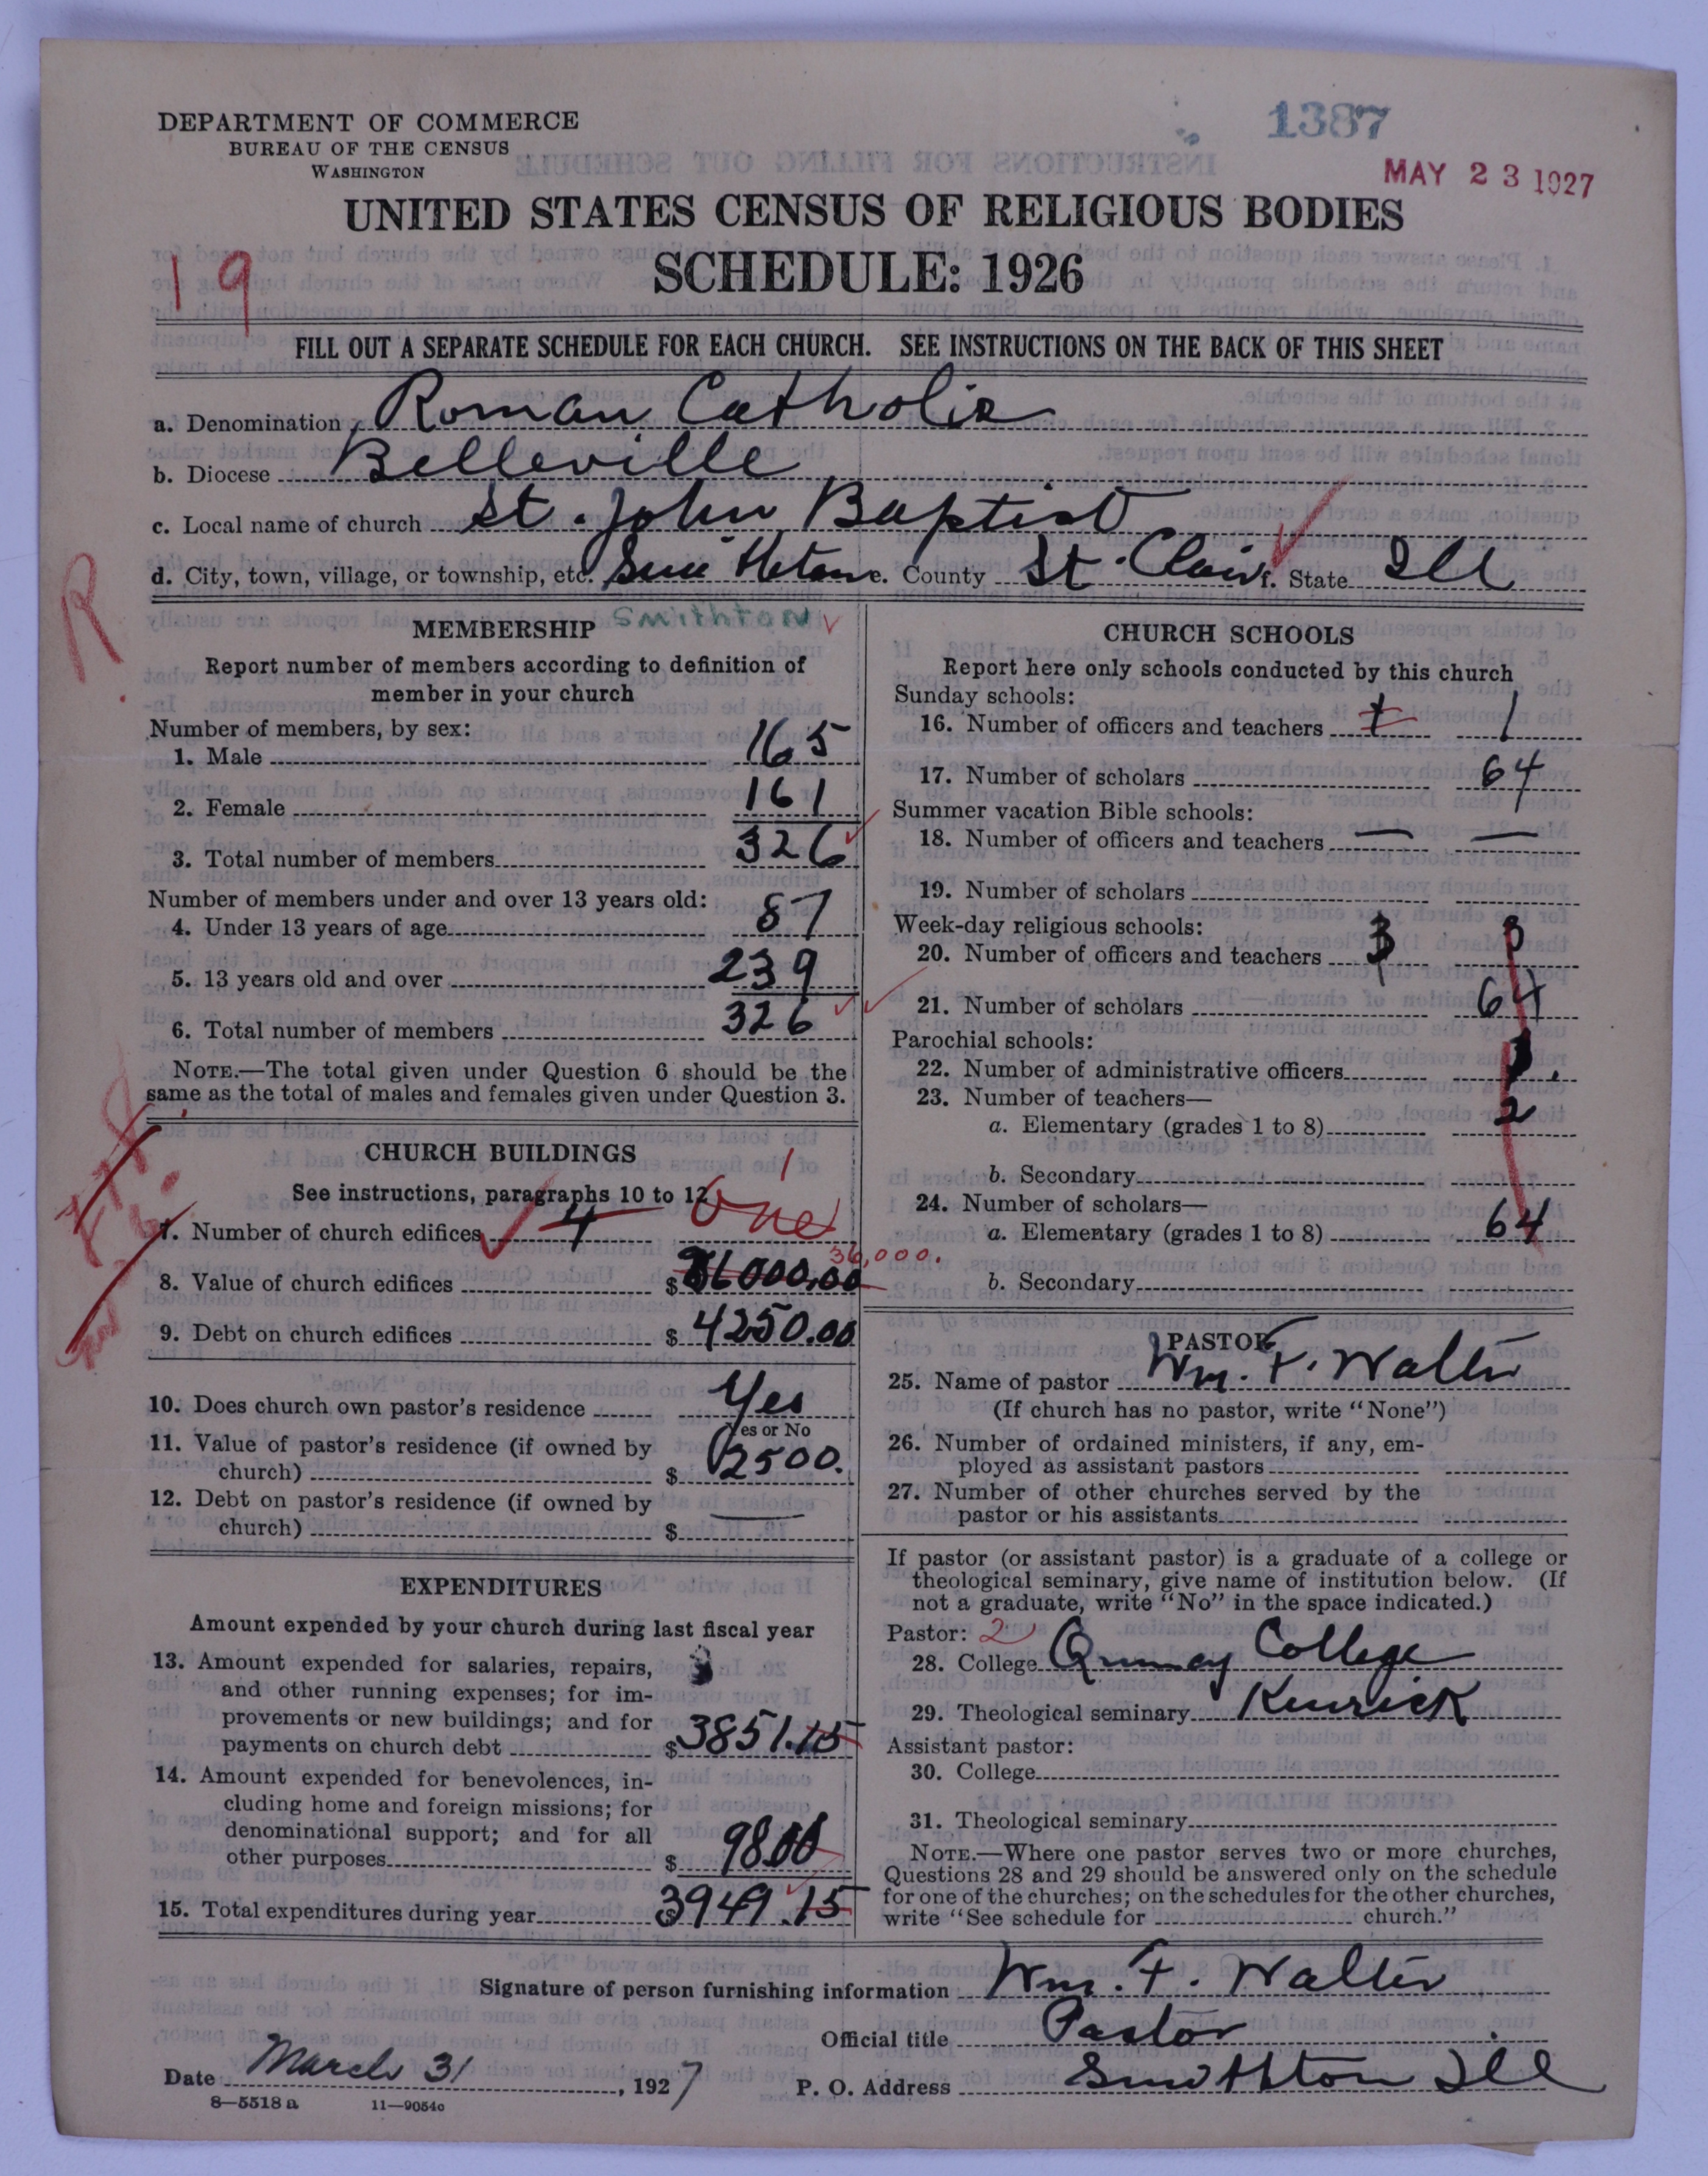 1387
MAY 23 1927
DEPARTMENT OF COMMERCE
BUREAU OF THE CENSUS
WASHINGTON
UNITED STATES CENSUS OF RELIGIOUS BODIES
SCHEDULE: 1926
19
FILL OUT A SEPARATE SCHEDULE FOR EACH CHURCH. SEE INSTRUCTIONS ON THE BACK OF THIS SHEET
a. Denomination Roman Catholic
b. Diocese Belleville
c. Local name of church St. John Baptist
d. City, town, village, or township, etc. Smithton e. County St. Clair f. State Ill
Smithton
R
MEMBERSHIP
Report number of members according to definition of
member in your church
Number of members, by sex:
1. Male 165
2. Female 161
3. Total number of members 326
Number of members under and over 13 years old:
4. Under 13 years of age 87
5. 13 years old and over 239
6. Total number of members 326
NOTE.—The total given under Question 6 should be the
same as the total of males and females given under Question 3.
CHURCH BUILDINGS
See instructions, paragraphs 10 to 12
1
7. Number of church edifices 4 One
36,000.
8. Value of church edifices $ 36000.00
9. Debt on church edifices $ 4250.00
10. Does church own pastor's residence Yes
Yes or No
11. Value of pastor's residence (if owned by
church) $ 2500.
12. Debt on pastor's residence (if owned by
church) $ —
EXPENDITURES
Amount expended by your church during last fiscal year
13. Amount expended for salaries, repairs,
and other running expenses; for im-
provements or new buildings; and for
payments on church debt $ 3851.15
14. Amount expended for benevolences, in-
cluding home and foreign missions; for
denominational support; and for all
other purposes $ 98.00
15. Total expenditures during year $ 3949.15
CHURCH SCHOOLS
Report here only schools conducted by this church
Sunday schools:
16. Number of officers and teachers 1 1
17. Number of scholars 64
Summer vacation Bible schools:
18. Number of officers and teachers — —
19. Number of scholars
Week-day religious schools:
20. Number of officers and teachers 3 3
21. Number of scholars 64
Parochial schools:
22. Number of administrative officers 1.
23. Number of teachers—
a. Elementary (grades 1 to 8) 2
b. Secondary
24. Number of scholars—
a. Elementary (grades 1 to 8) 64
b. Secondary
PASTOR
25. Name of pastor Wm. F. Walter
(If church has no pastor, write "None")
26. Number of ordained ministers, if any, em-
ployed as assistant pastors
27. Number of other churches served by the
pastor or his assistants
If pastor (or assistant pastor) is a graduate of a college or
theological seminary, give name of institution below. (If
not a graduate, write "No" in the space indicated.)
Pastor: 2
28. College Quincy College
29. Theological seminary Kenrick
Assistant pastor:
30. College
31. Theological seminary
NOTE.—Where one pastor serves two or more churches,
Questions 28 and 29 should be answered only on the schedule
for one of the churches; on the schedules for the other churches,
write "See schedule for church."
Signature of person furnishing information Wm. F. Walter
Official title Pastor
Date March 31, 1927 P. O. Address Smithton Ill
8—5518 a 11—9054c